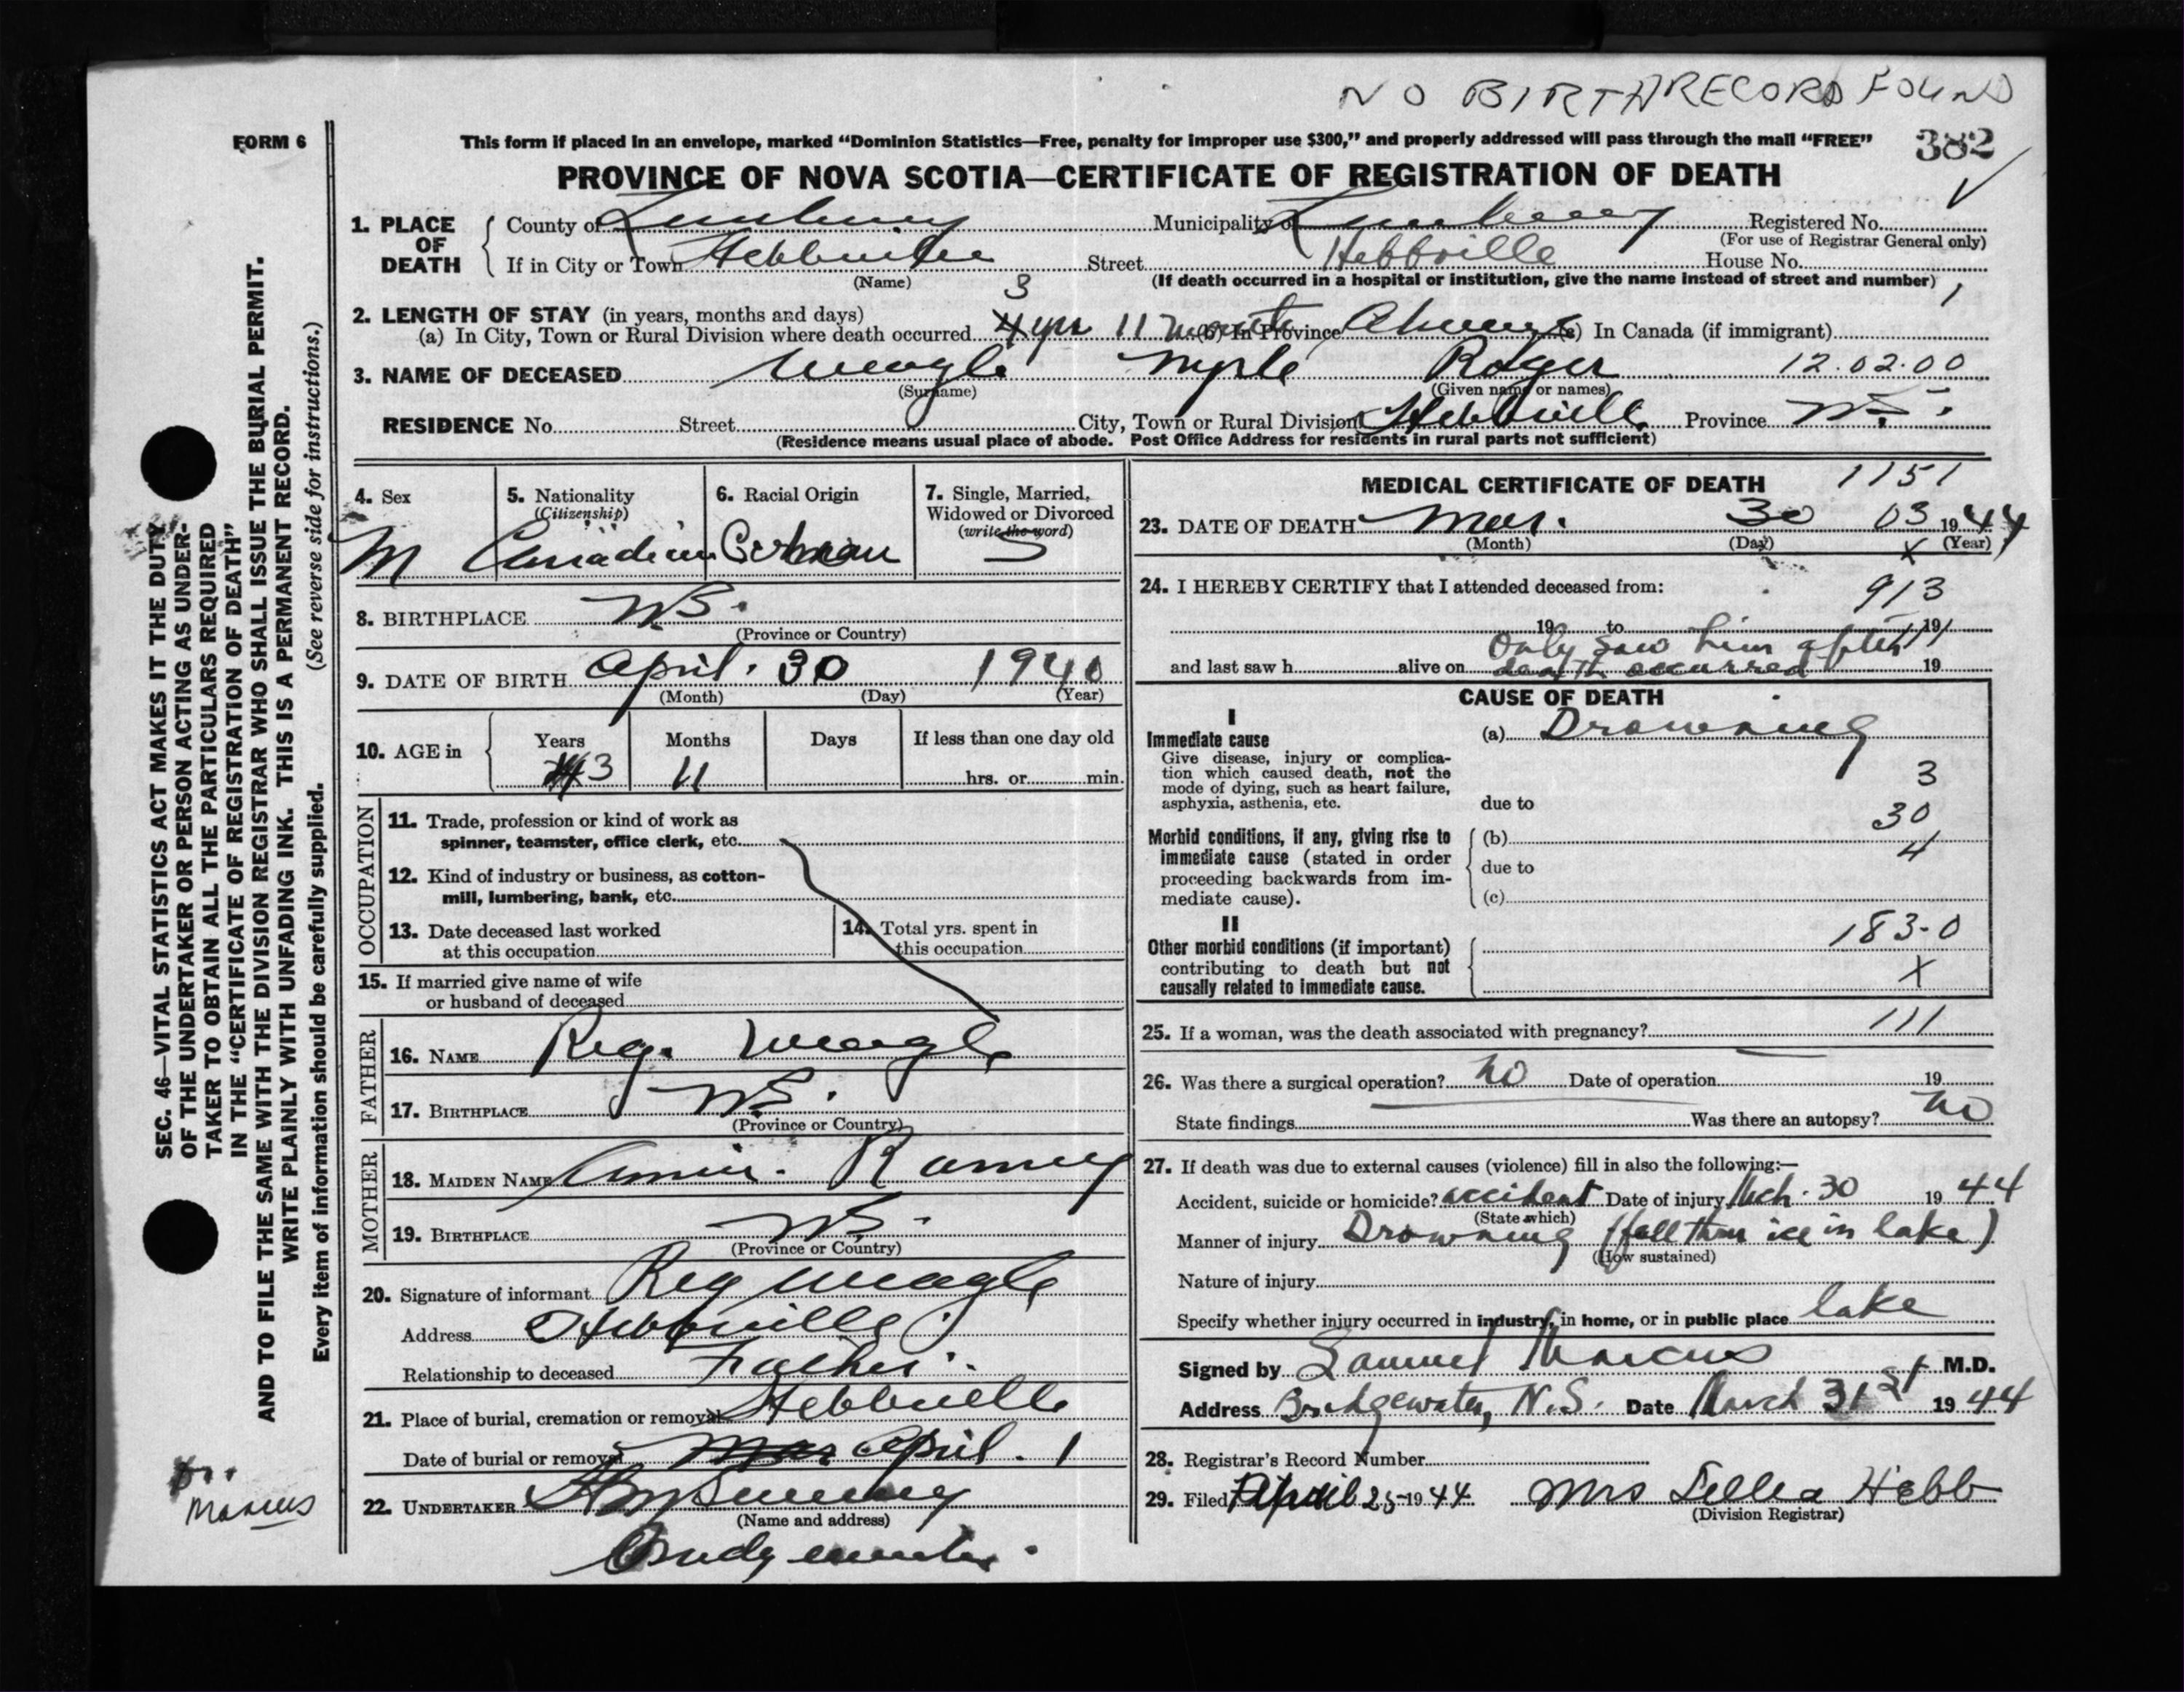 NO BIRTH RECORD FOUND
FORM 6
This form if placed in an envelope, marked “Dominion Statistics—Free, penalty for improper use $300,” and properly addressed will pass through the mail “FREE”
382
PROVINCE OF NOVA SCOTIA—CERTIFICATE OF REGISTRATION OF DEATH
1. PLACE OF DEATH
County of Lunenburg Municipality of Lunenburg Registered No.
(For use of Registrar General only)
If in City or Town Hebbville Street Hebbville House No.
(Name) (If death occurred in a hospital or institution, give the name instead of street and number)
3 1
2. LENGTH OF STAY (in years, months and days)
(a) In City, Town or Rural Division where death occurred 4 yrs 11 months (b) In Province Always (c) In Canada (if immigrant)
3. NAME OF DECEASED Weagle Myrle Roger 12.02.00
(Surname) (Given name or names)
RESIDENCE No. Street City, Town or Rural Division Hebbville Province N.S.
(Residence means usual place of abode. Post Office Address for residents in rural parts not sufficient)
4. Sex
M
5. Nationality
(Citizenship)
Canadian
6. Racial Origin
German
7. Single, Married, Widowed or Divorced
(write the word)
S
8. BIRTHPLACE N.S.
(Province or Country)
9. DATE OF BIRTH April 30 1940
(Month) (Day) (Year)
10. AGE in Years Months Days If less than one day old
3 11 hrs. or min.
OCCUPATION
11. Trade, profession or kind of work as
spinner, teamster, office clerk, etc.
12. Kind of industry or business, as cotton-
mill, lumbering, bank, etc.
13. Date deceased last worked
at this occupation
14. Total yrs. spent in
this occupation
15. If married give name of wife
or husband of deceased
FATHER
16. NAME Reg. Weagle
17. BIRTHPLACE N.S.
(Province or Country)
MOTHER
18. MAIDEN NAME Annie Ramey
19. BIRTHPLACE N.S.
(Province or Country)
20. Signature of informant Reg Weagle
Address Hebbville
Relationship to deceased Father
21. Place of burial, cremation or removal Hebbville
Date of burial or removal Mar April 1
22. UNDERTAKER
(Name and address)
MEDICAL CERTIFICATE OF DEATH 1151
23. DATE OF DEATH Mar. 30 03 1944
(Month) (Day) X (Year)
24. I HEREBY CERTIFY that I attended deceased from:
913
19 to 19
111
and last saw h alive on Only saw him after death occurred 19
CAUSE OF DEATH
I
Immediate cause
Give disease, injury or complica-
tion which caused death, not the
mode of dying, such as heart failure,
asphyxia, asthenia, etc.
(a) Drowning
3
due to
30
Morbid conditions, if any, giving rise to
immediate cause (stated in order
proceeding backwards from im-
mediate cause).
(b)
4
due to
(c)
II
Other morbid conditions (if important)
contributing to death but not
causally related to immediate cause.
183-0
X
25. If a woman, was the death associated with pregnancy? 111
26. Was there a surgical operation? no Date of operation 19
State findings Was there an autopsy? no
27. If death was due to external causes (violence) fill in also the following:—
Accident, suicide or homicide? accident Date of injury Mch. 30 1944
(State which)
Manner of injury Drowning (fell thru ice in lake)
(How sustained)
Nature of injury
Specify whether injury occurred in industry, in home, or in public place lake
Signed by Samuel Marcus M.D.
Address Bridgewater, N.S. Date March 31st 1944
28. Registrar's Record Number
29. Filed April 25 1944 Mrs Lellea Hebb
(Division Registrar)
SEC. 46—VITAL STATISTICS ACT MAKES IT THE DUTY
OF THE UNDERTAKER OR PERSON ACTING AS UNDER-
TAKER TO OBTAIN ALL THE PARTICULARS REQUIRED
IN THE “CERTIFICATE OF REGISTRATION OF DEATH”
AND TO FILE THE SAME WITH THE DIVISION REGISTRAR WHO SHALL ISSUE THE BURIAL PERMIT.
WRITE PLAINLY WITH UNFADING INK. THIS IS A PERMANENT RECORD.
Every item of information should be carefully supplied. (See reverse side for instructions.)
Dr.
Marcus